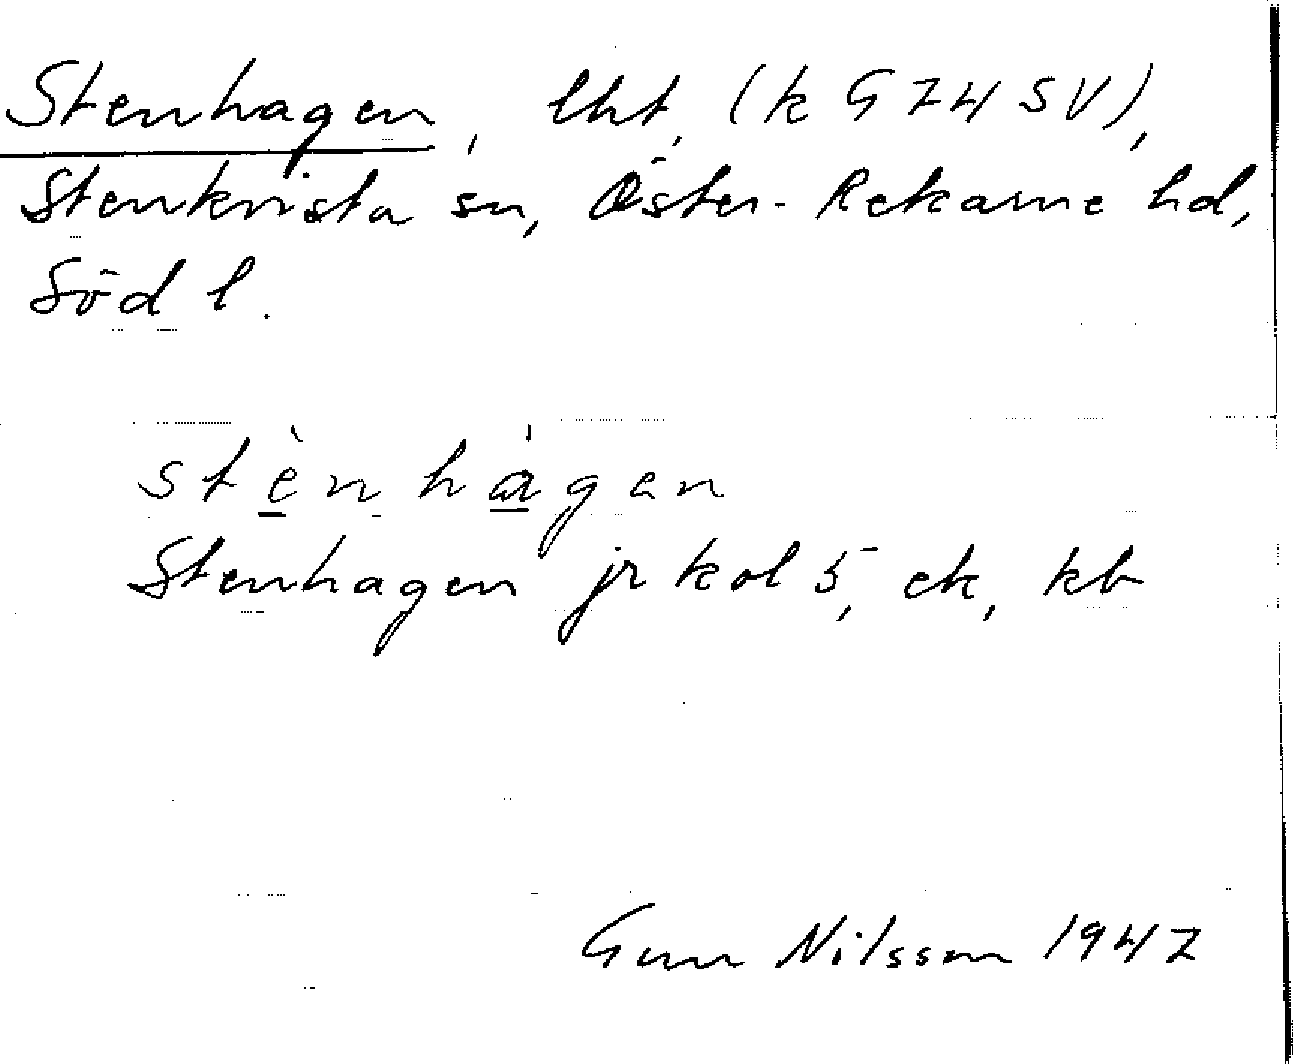 Stenhagen, lht, (k G74 SV),
Stenkvista sn, Öster-Rekarne hd,
Söd l.
stènhágen
Stenhagen jr kol 5, ek, kb
Gun Nilsson 1947